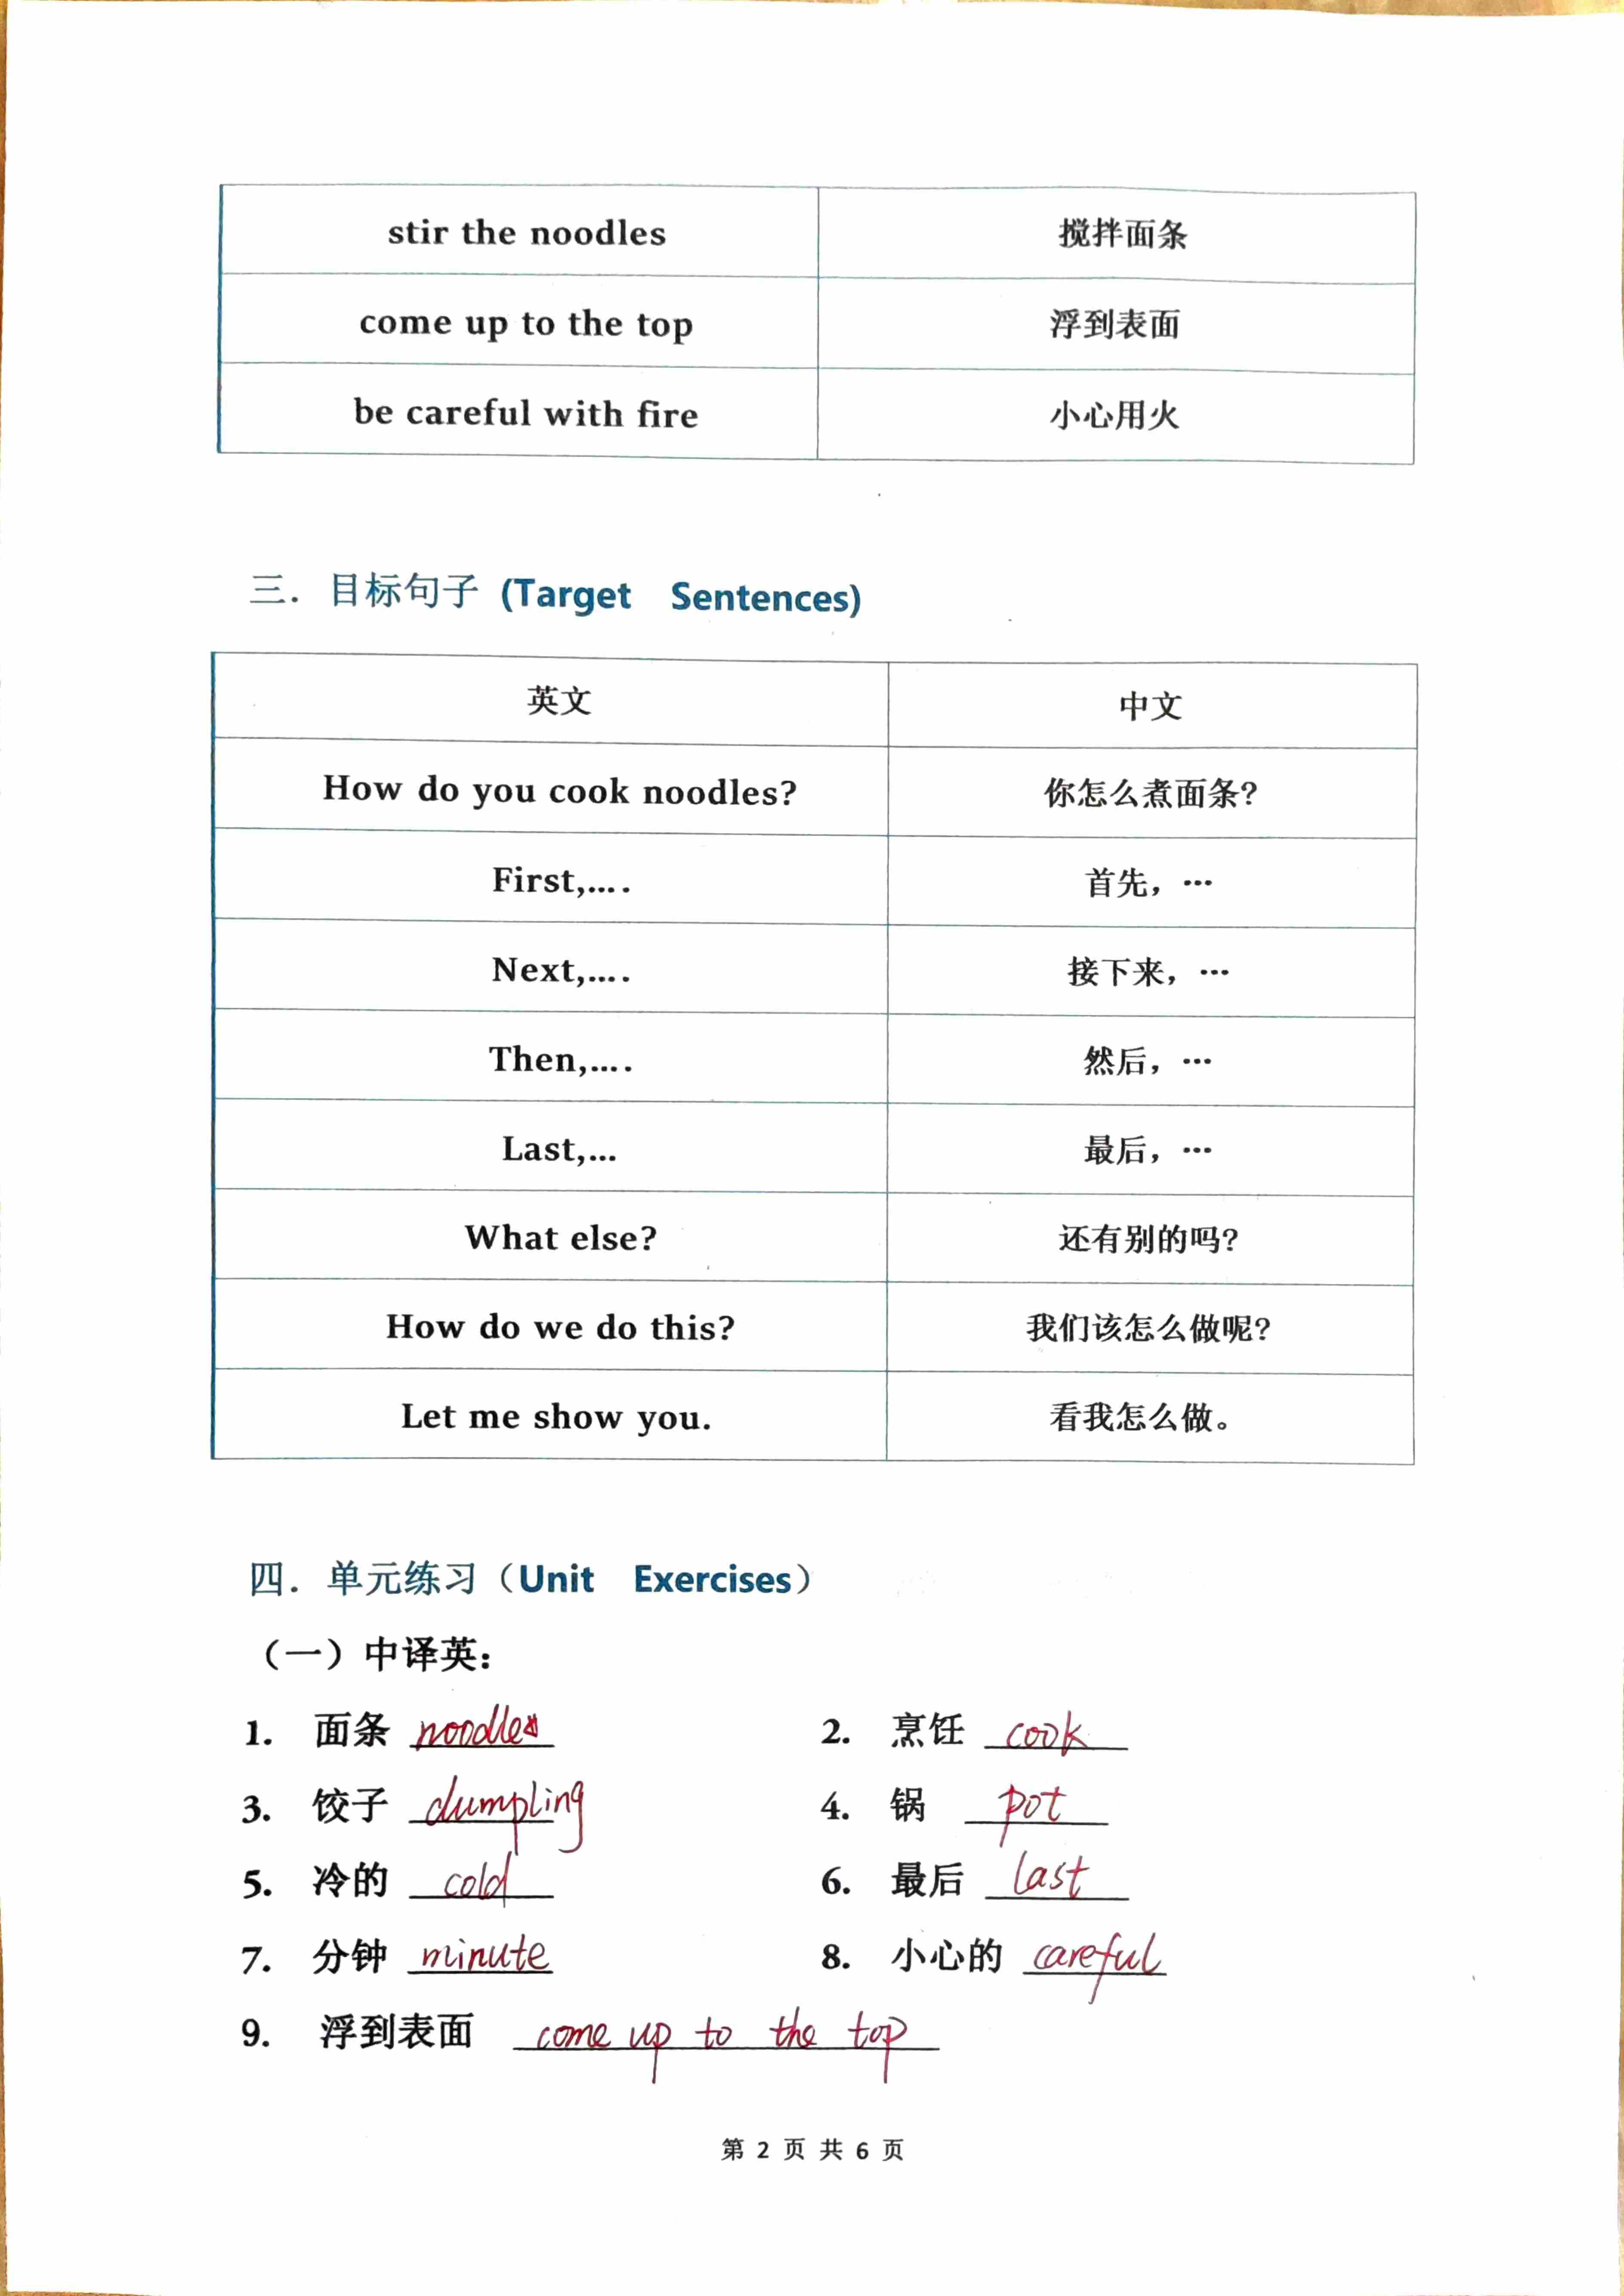 stir the noodles 搅拌面条
come up to the top 浮到表面
be careful with fire 小心用火
三. 目标句子 (Target Sentences)
英文 中文
How do you cook noodles? 你怎么煮面条?
First,.... 首先，…
Next,.... 接下来，…
Then,.... 然后，…
Last,... 最后，…
What else? 还有别的吗?
How do we do this? 我们该怎么做呢?
Let me show you. 看我怎么做。
四. 单元练习（Unit Exercises）
（一）中译英：
1. 面条 noodles 2. 烹饪 cook
3. 饺子 dumpling 4. 锅 pot
5. 冷的 cold 6. 最后 last
7. 分钟 minute 8. 小心的 careful
9. 浮到表面 come up to the top
第 2 页 共 6 页